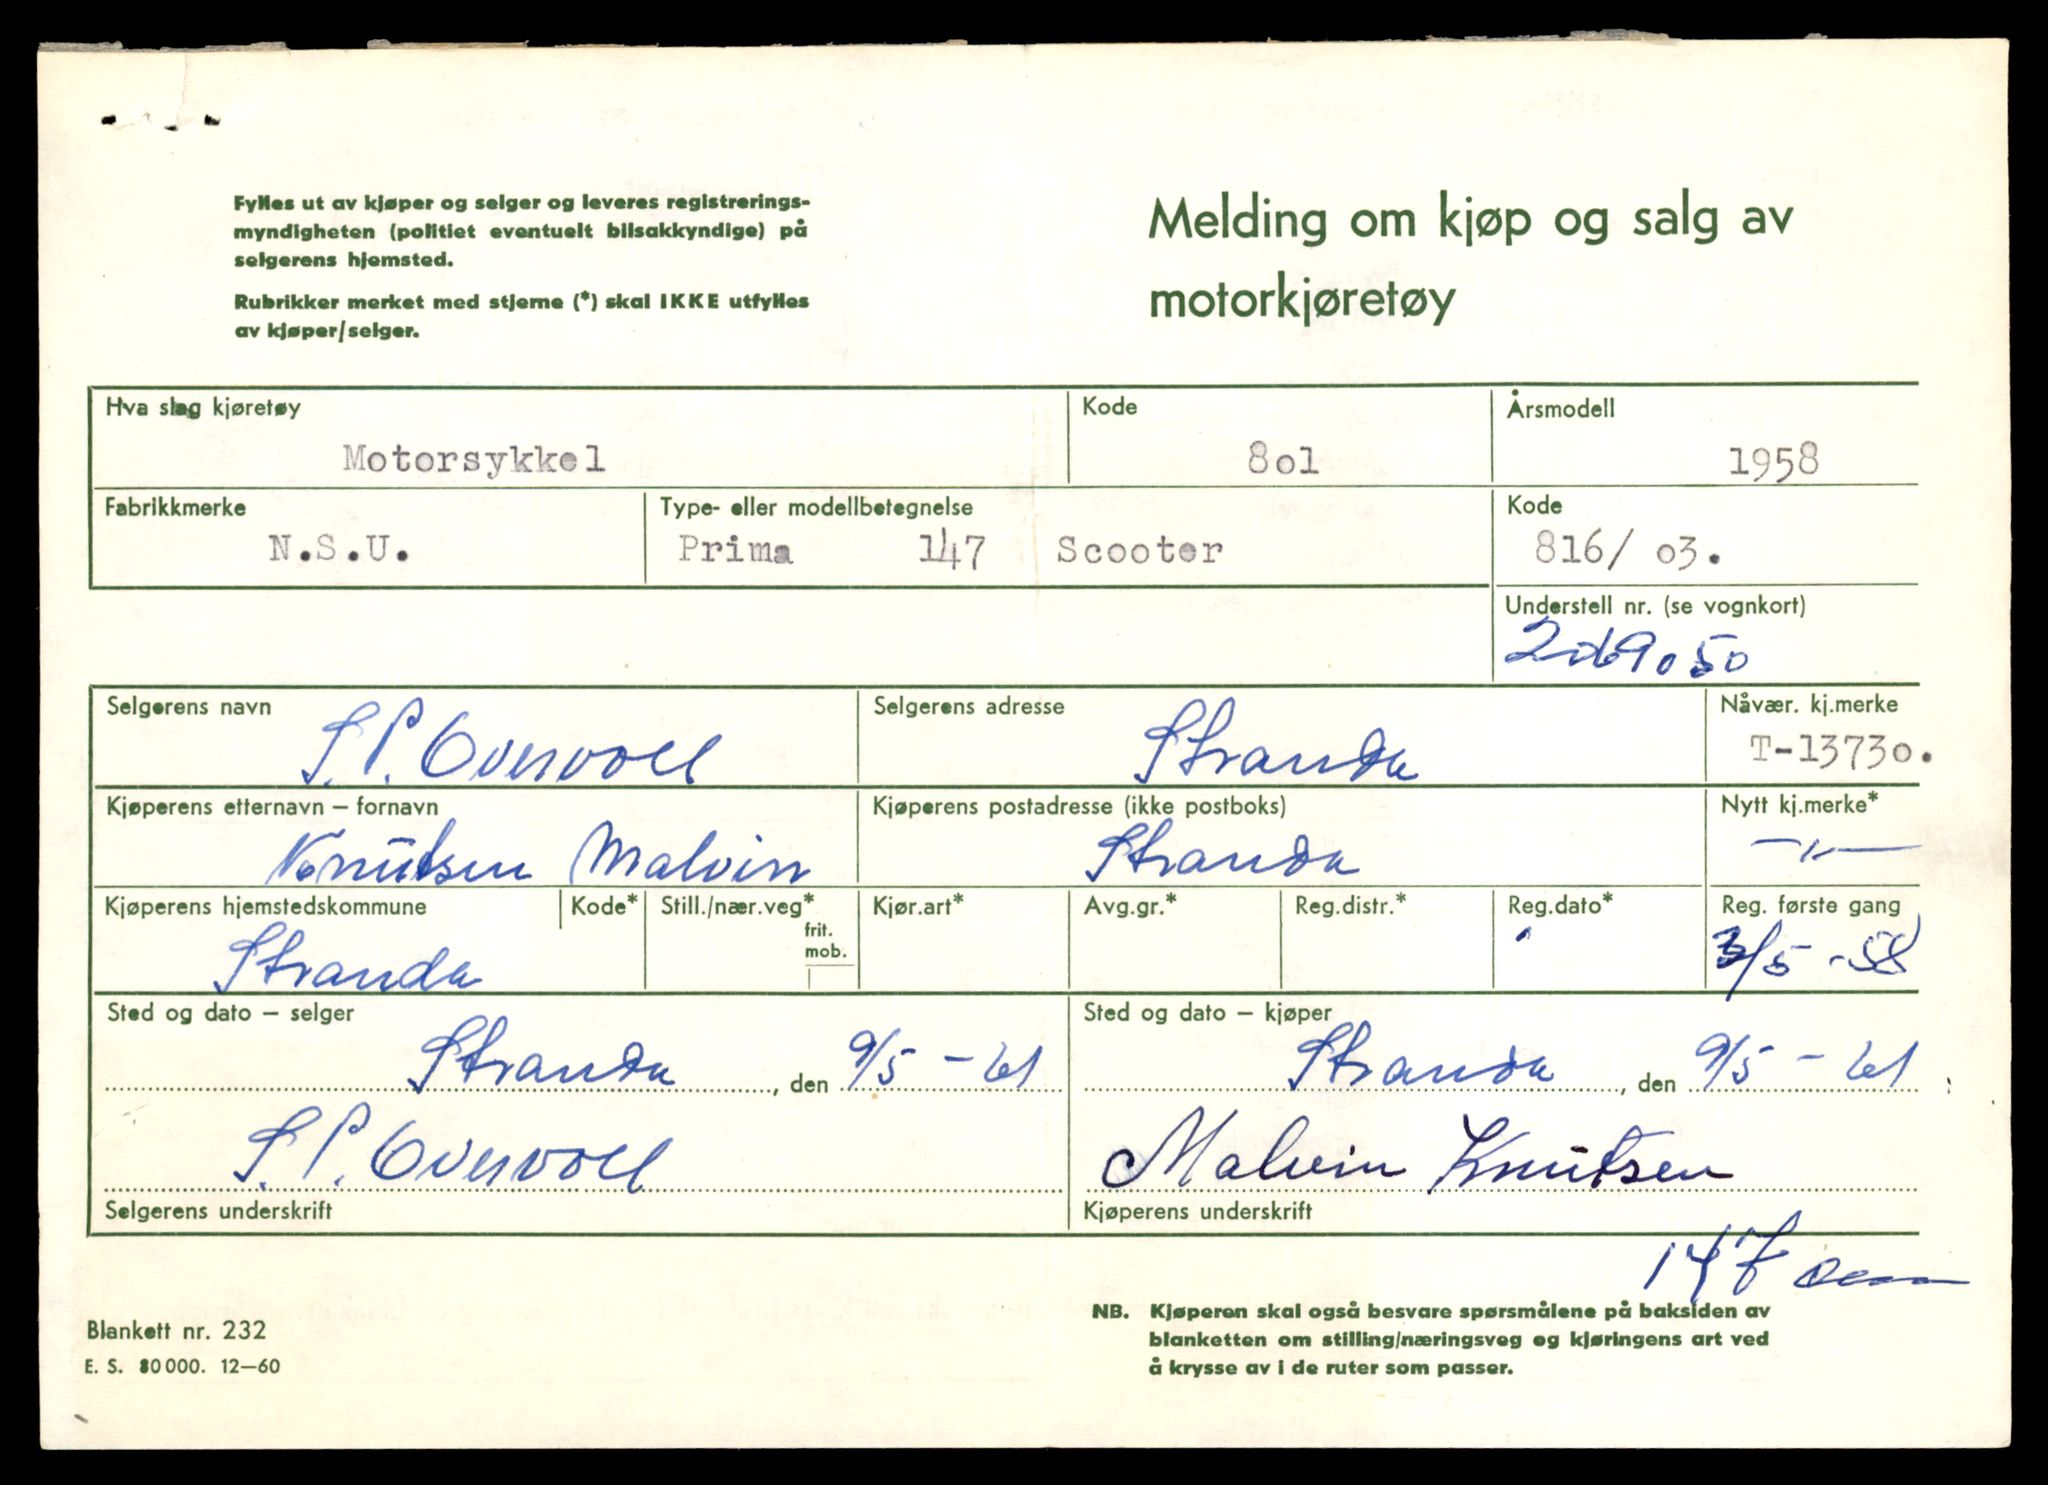 Fylles ut av kjøper og selger og leveres registrerings-
myndigheten (politiet eventuelt bilsakkyndige) på
selgerens hjemsted.
Rubrikker merket med stjerne (*) skal IKKE utfylles
av kjøper/selger.
Melding om kjøp og salg av
motorkjøretøy
Hva slag kjøretøy Kode Årsmodell
Motorsykkel 8o1 1958
Fabrikkmerke Type- eller modellbetegnelse Kode
N.S.U. Prima 147 Scooter 816/ o3.
Understell nr. (se vognkort)
Selgerens navn Selgerens adresse Nåvær. kj.merke
S.P. Overvoll Stranda T-1373o.
Kjøperens etternavn – fornavn Kjøperens postadresse (ikke postboks) Nytt kj.merke*
Knutsen Malvin Stranda —"—
Kjøperens hjemstedskommune Kode* Still./nær.veg* frit. mob. Kjør.art* Avg.gr.* Reg.distr.* Reg.dato* Reg. første gang
Stranda 3/5 -58
Sted og dato – selger Sted og dato – kjøper
Stranda, den 9/5 - 61 Stranda, den 9/5 - 61
S.P. Overvoll Malvin Knutsen
Selgerens underskrift Kjøperens underskrift
147 ccm
NB. Kjøperen skal også besvare spørsmålene på baksiden av
blanketten om stilling/næringsveg og kjøringens art ved
å krysse av i de ruter som passer.
Blankett nr. 232
E. S. 80 000. 12—60